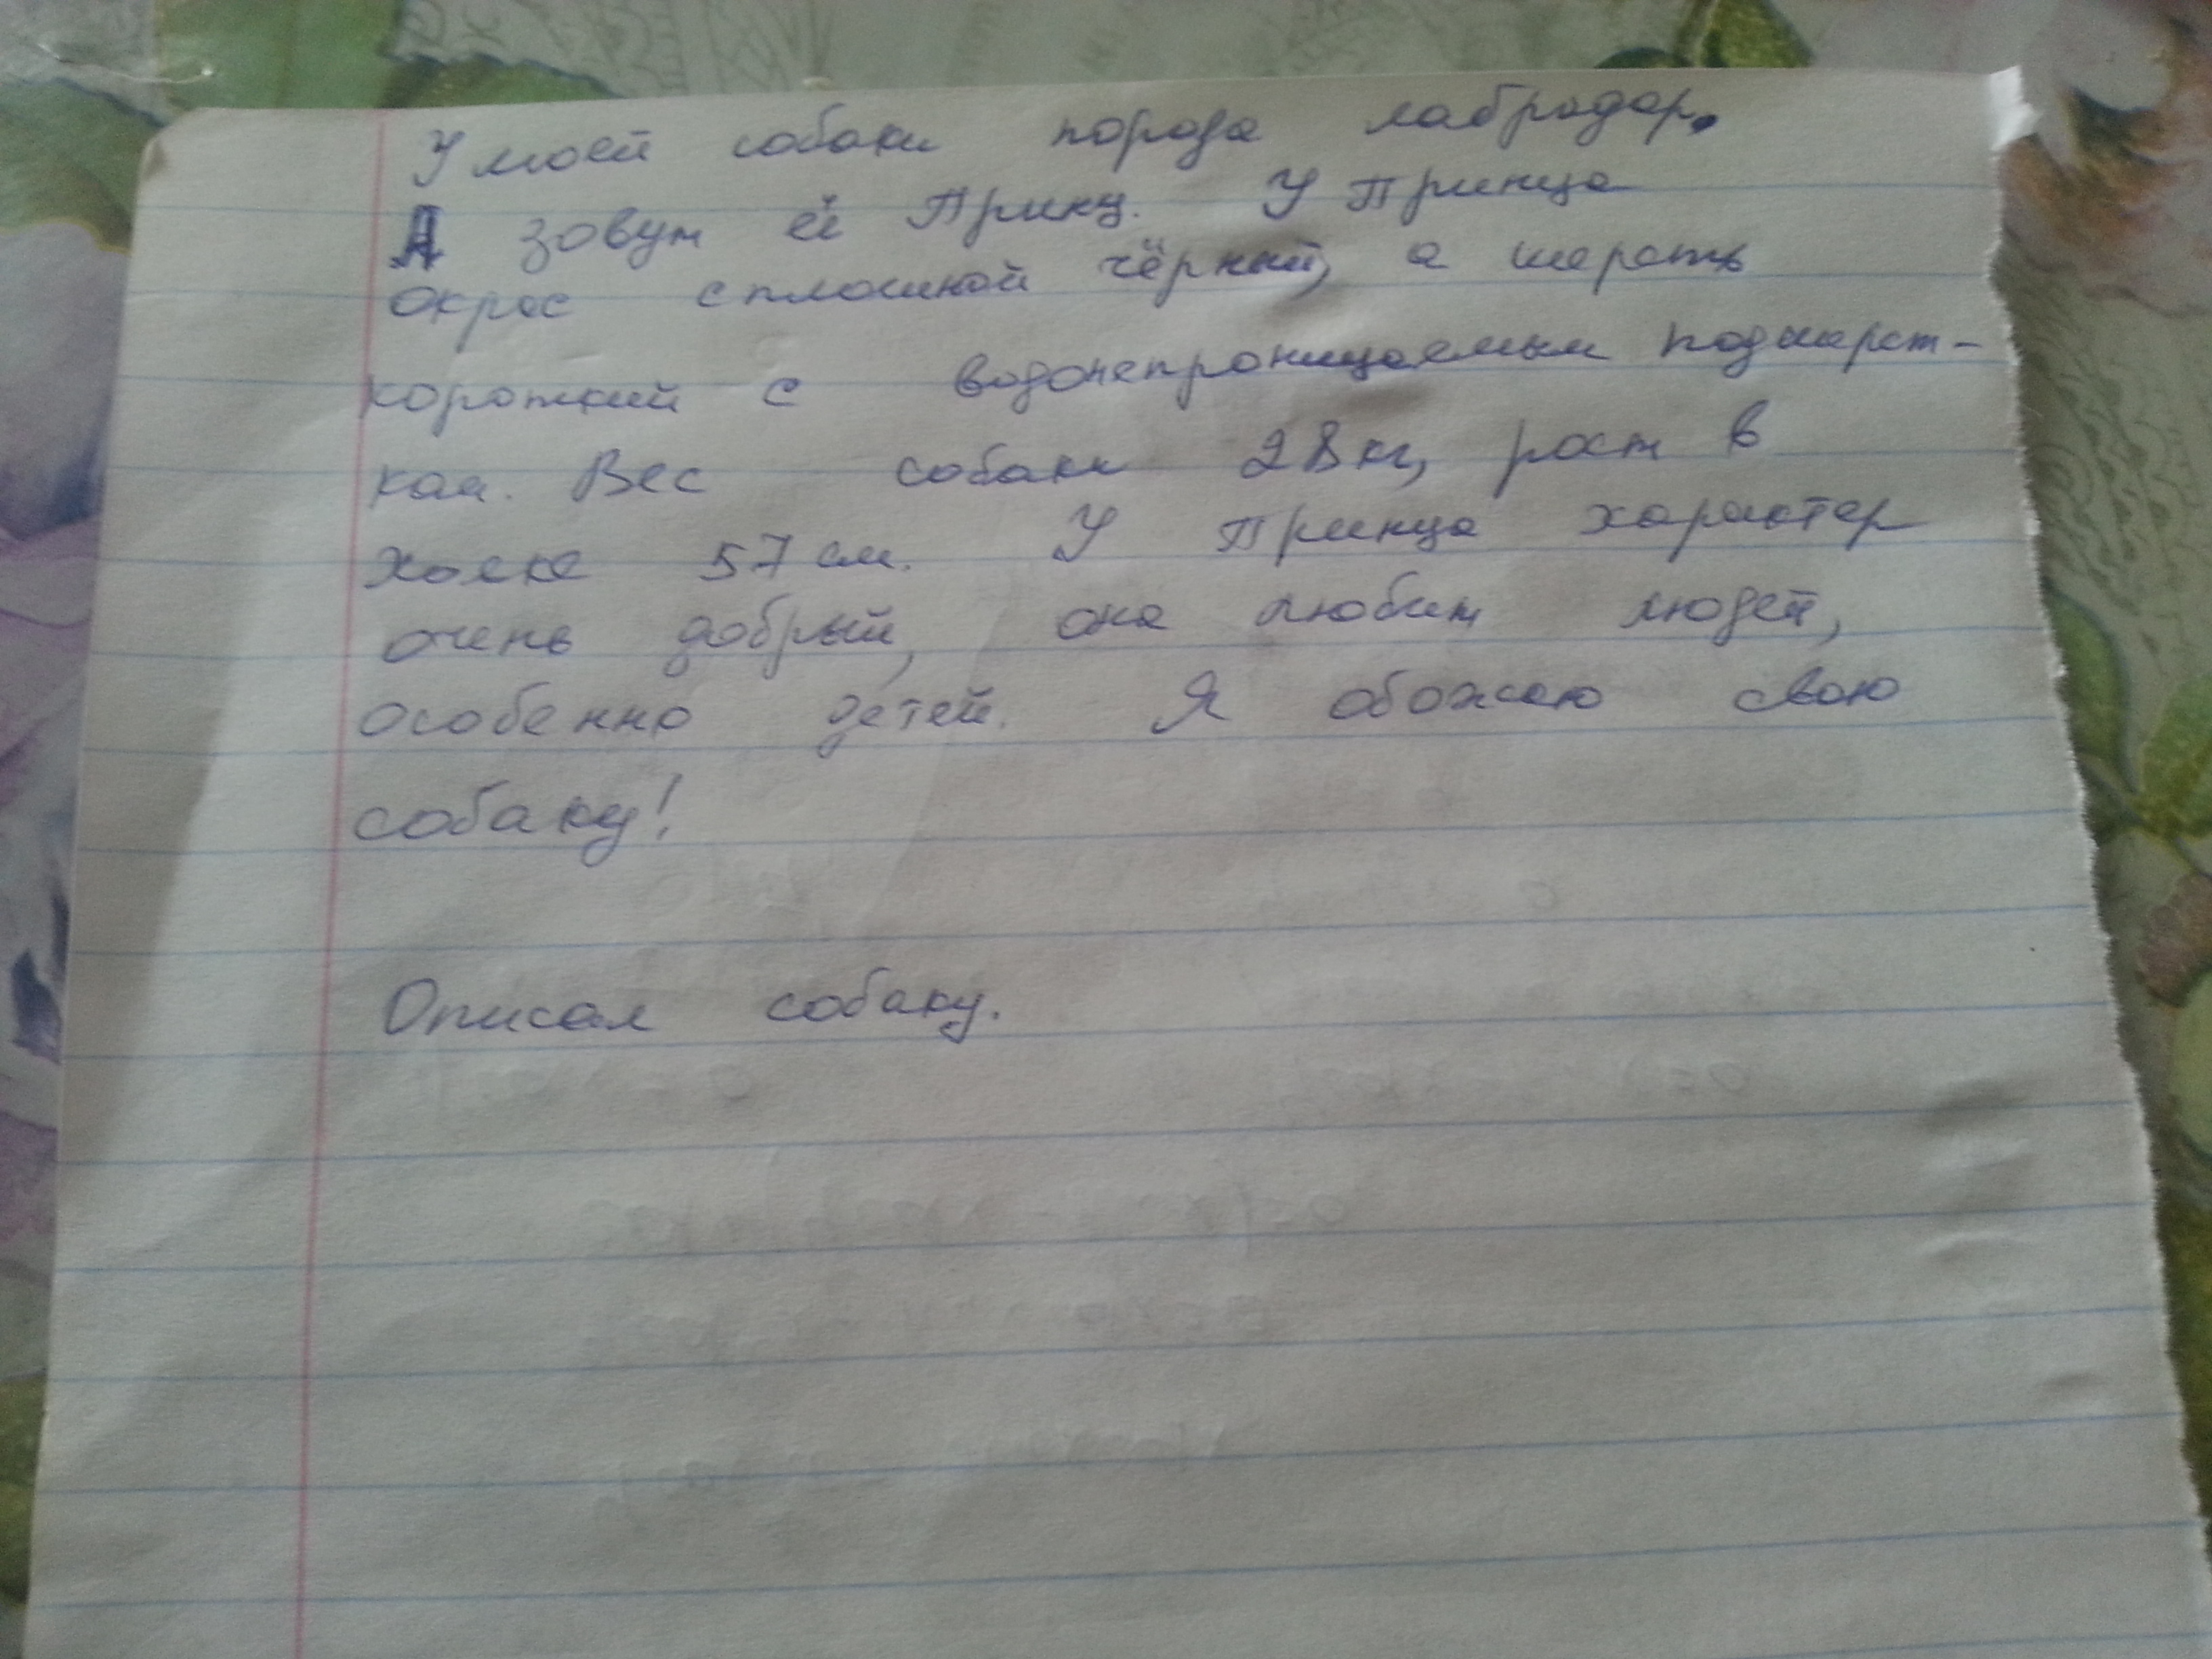 У моей собаки порода лабродор.
А зовут её Принц. У Принца
окрас сплошной чёрный, а шерсть
короткий с водонепроницаемым подшерст-
ком. Вес собаки 28 кг, рост в
холке 57 см. У Принца характер
очень добрый, она любит людей,
особенно детей. Я обожаю свою
собаку!
Описал собаку.